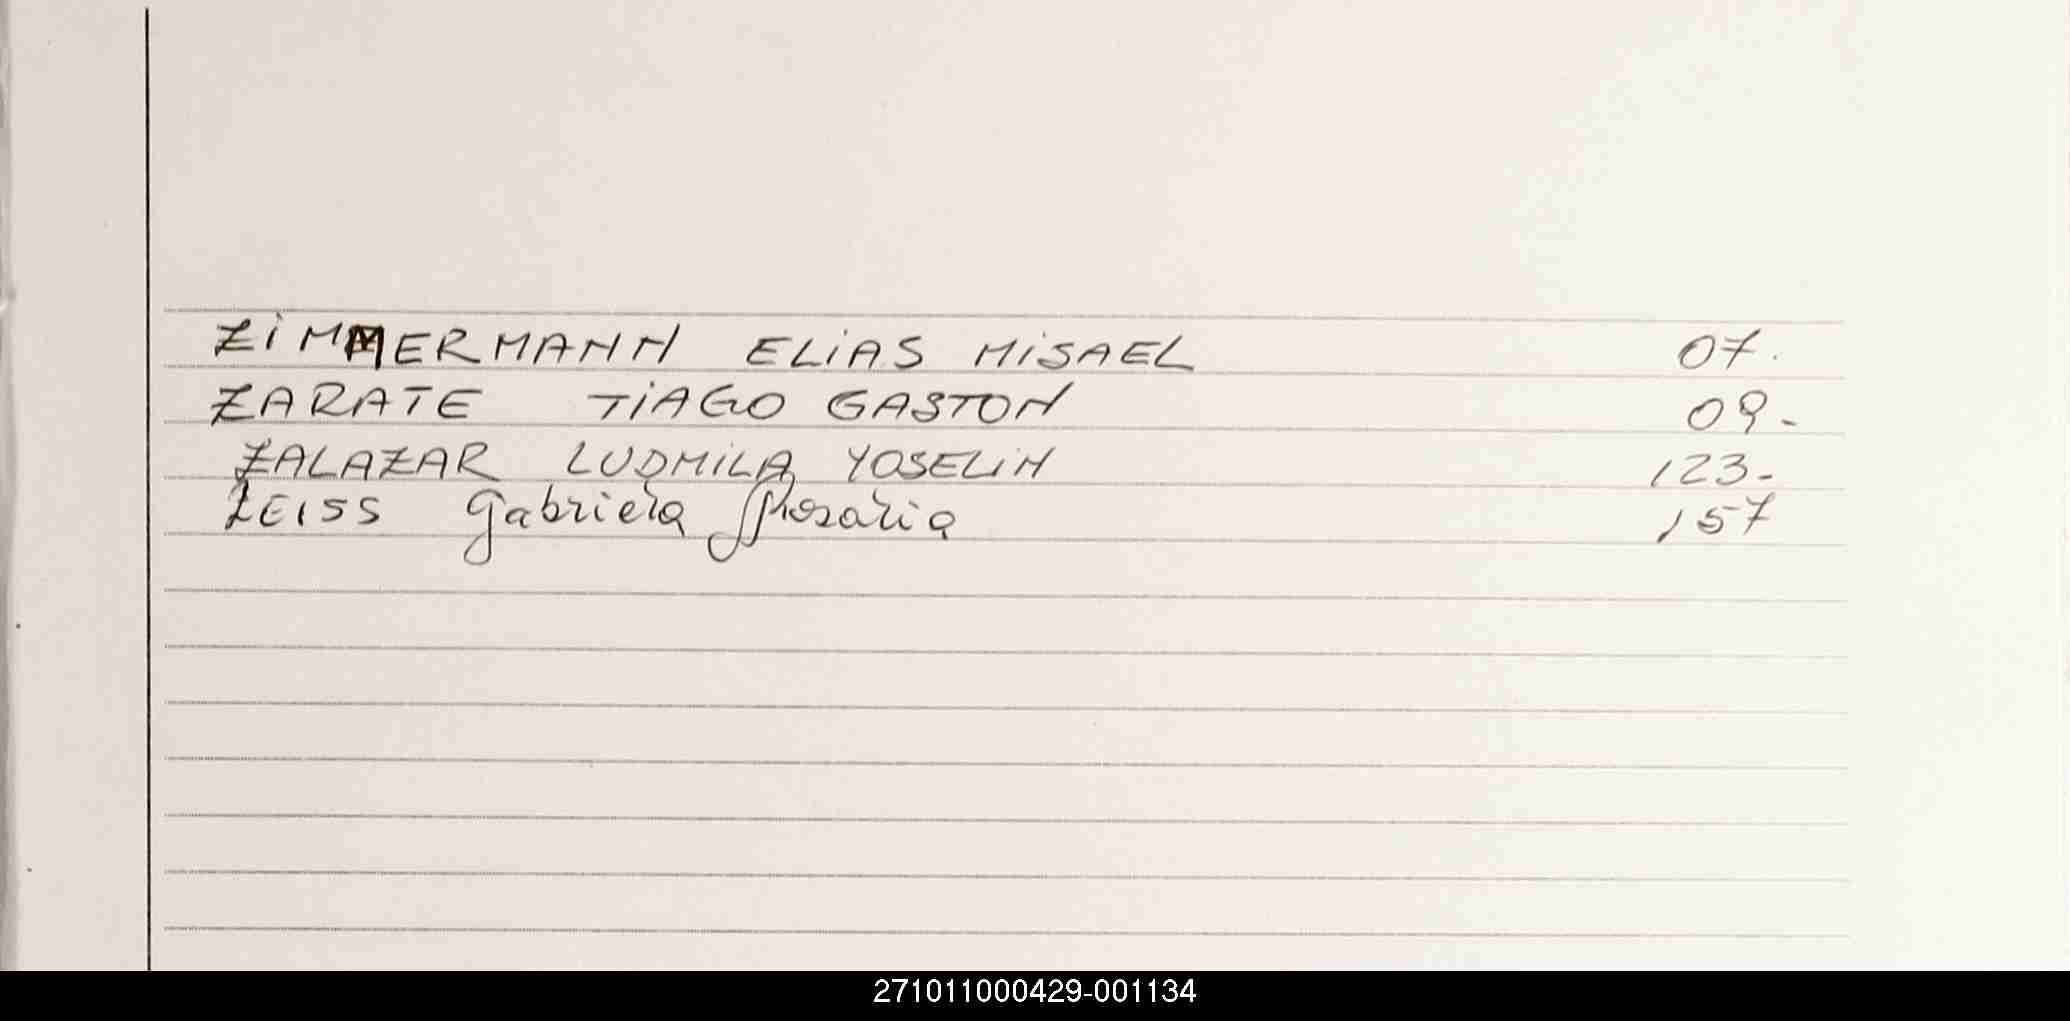 ZIMMERMANN ELIAS MISAEL 07.
ZARATE TIAGO GASTON 09-
ZALAZAR LUDMILA YOSELIN 123-
ZEISS Gabriela Rosaria 157
271011000429-001134